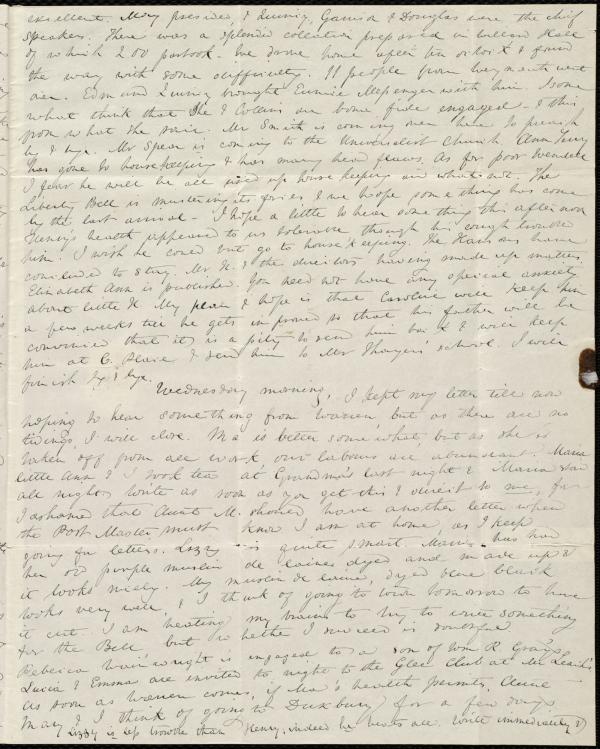 excellent. May presided, & Quincy, Garrison & Douglas were the chief
speakers. There was a splendid collation prepared in Willard Hall
of which 200 partook. We drove home after ten o'clock & found
the way with some difficulty. 11 people from Weymouth went
over. Edmund Quincy brought Eunice Messenger with him. I some
what think that she & Collins are bona fide engaged - I this
from what she said. Mr Smith is coming over here to preach
by & bye. Mr Spear is coming to the Universalist Church. Ann
has gone to housekeeping & has many new. As for poor Wendell
I fear he will be all used up house keeping and what not. The
Liberty Bell is mustering its forces, & we hope something has come
by the last arrival - I hope a little to hear something this afternoon
Henry's health appeared to us tolerable though his cough troubles
him. I wish he could but go to house keeping. The have
concluded to stay. Mr K. & the directors having made up matters.
Elizabeth Ann is publisher. You need not have any special anxiety
about little H. My plan & hope is that Caroline will keep him
a few weeks till he gets improved so that his father will be
convinced that it is a pity to send him but & I will keep
him at C. Place & send him to Mr Thayer's school. I will
finish by & bye.
Wednesday morning, I kept my letter till now
hoping to hear something from Warren but as there are no
tidings I will close. Ma is better somewhat but as she is
taken off from all work our labours are abundant. Maria
little Ann & I took tea at Grandma's last night & Maria staid
all night. Write as soon as you get this & direct to me, for
I ashamed that Aunt M. should have another letter when
the Post Master must know I am at home, as I keep
going for letters. Lizzy is quite smart. Maria has had
her old purple muslin de laine dyed and made up &
it looks nicely. My muslin de laine, dyed blue black
looks very well, & I think of going to town tomorrow to have
it cut. I am beating my brains to try to write something
for the Bell, but whether I succeed is doubtful
Rebecca Wainwright is engaged to a son of Wm R. Gray's
Lucia & Emma are invited to night to the Glee Club at Mr Leach's
as soon as Warren comes, if Ma's health permits, Anne
Mary & I think of going to Duxbury for a few days.
Lizzy is less trouble than Henry, indeed he beats all. Write immediately &